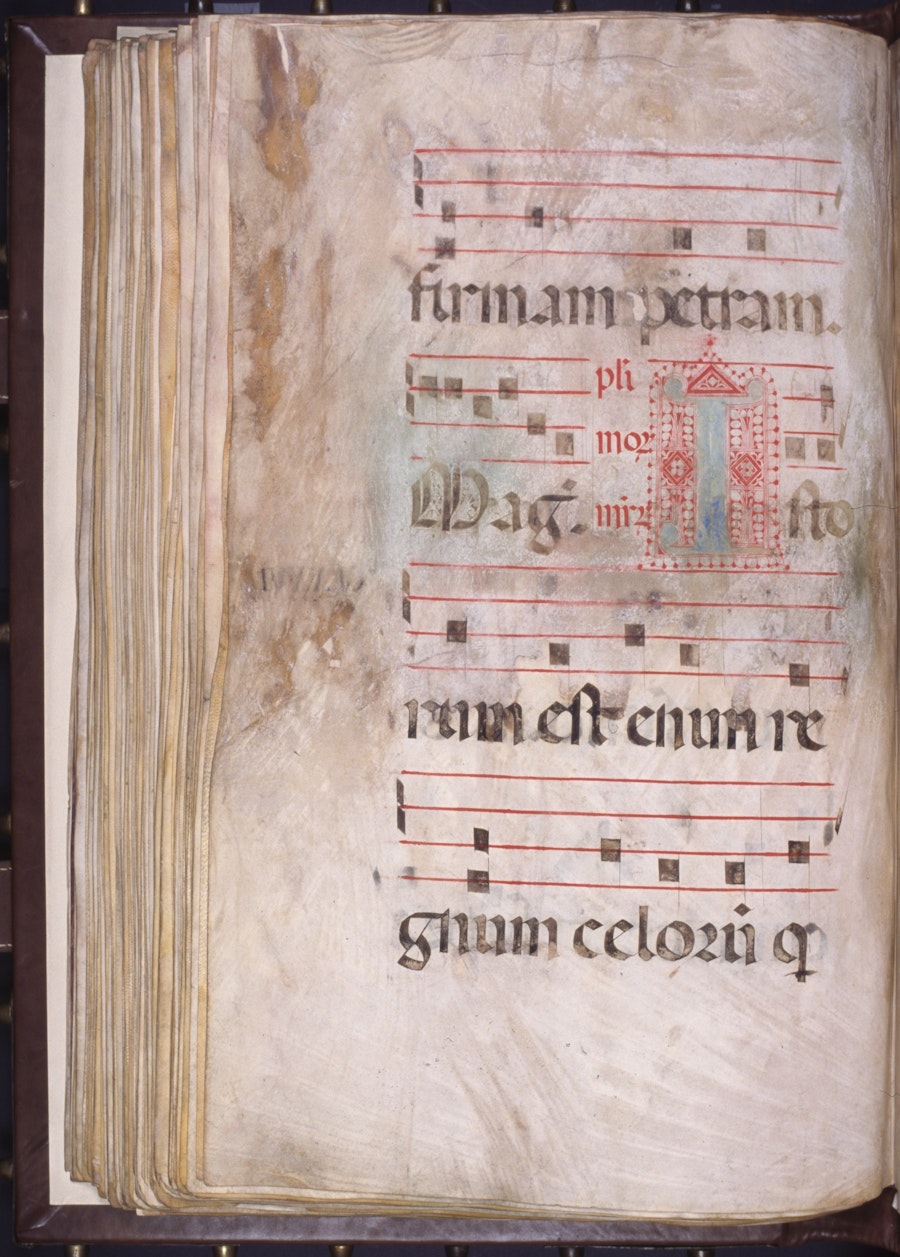 firmam petram.
pli
moꝝ
Mag̃. Isto
rum est enim re
gnum celorũ q